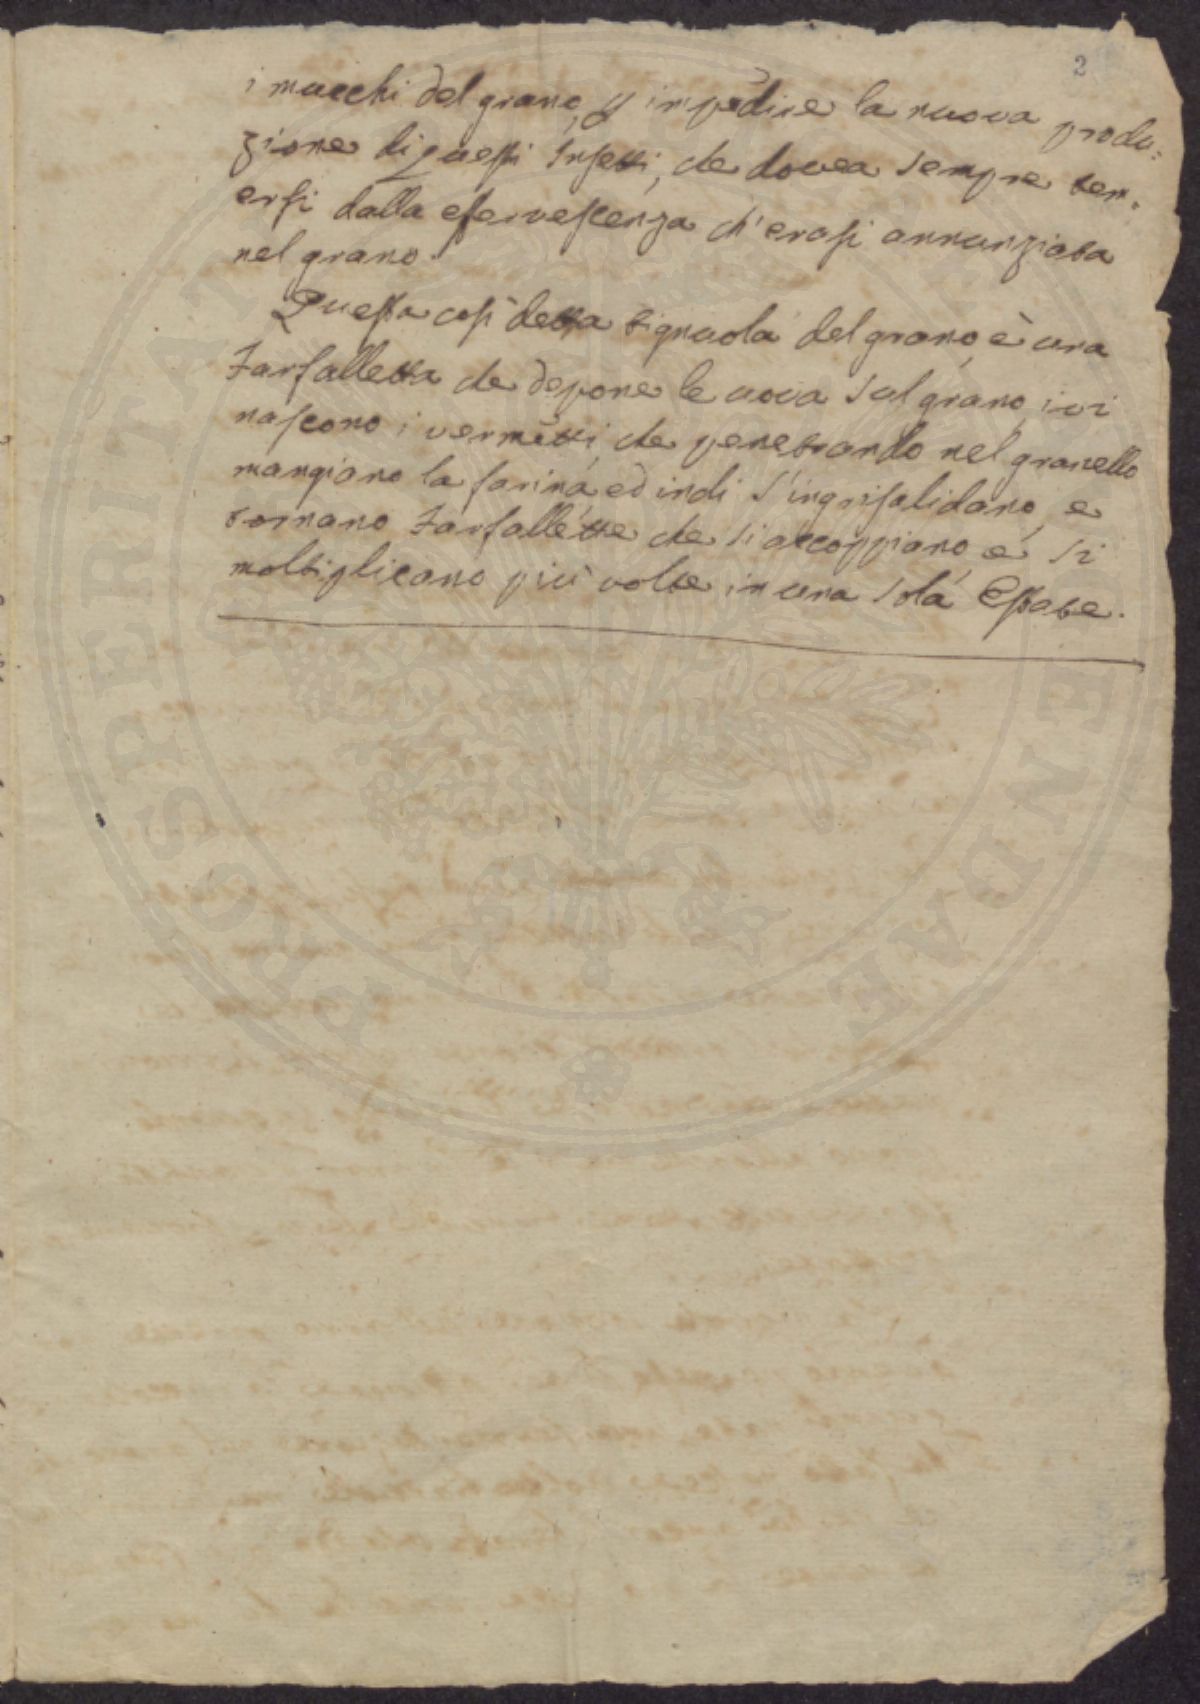 2
i mucchi del grano, p impedire la nuova produ=
zione di questi Insetti, che dovea sempre tem=
ersi dalla efervescenza ch'erasi annunziata
nel grano.
Questa così detta tignuola del grano, è una
Farfalletta che depone le uova sul grano, ivi
nascono i vermetti, che penetrando nel granello
mangiano la farina, ed indi s'ingrisalidano, e
tornano Farfallette che si accoppiano, e si
moltiplicano più volte in una sola Estate.
PROSPERITATI AUGENDAE